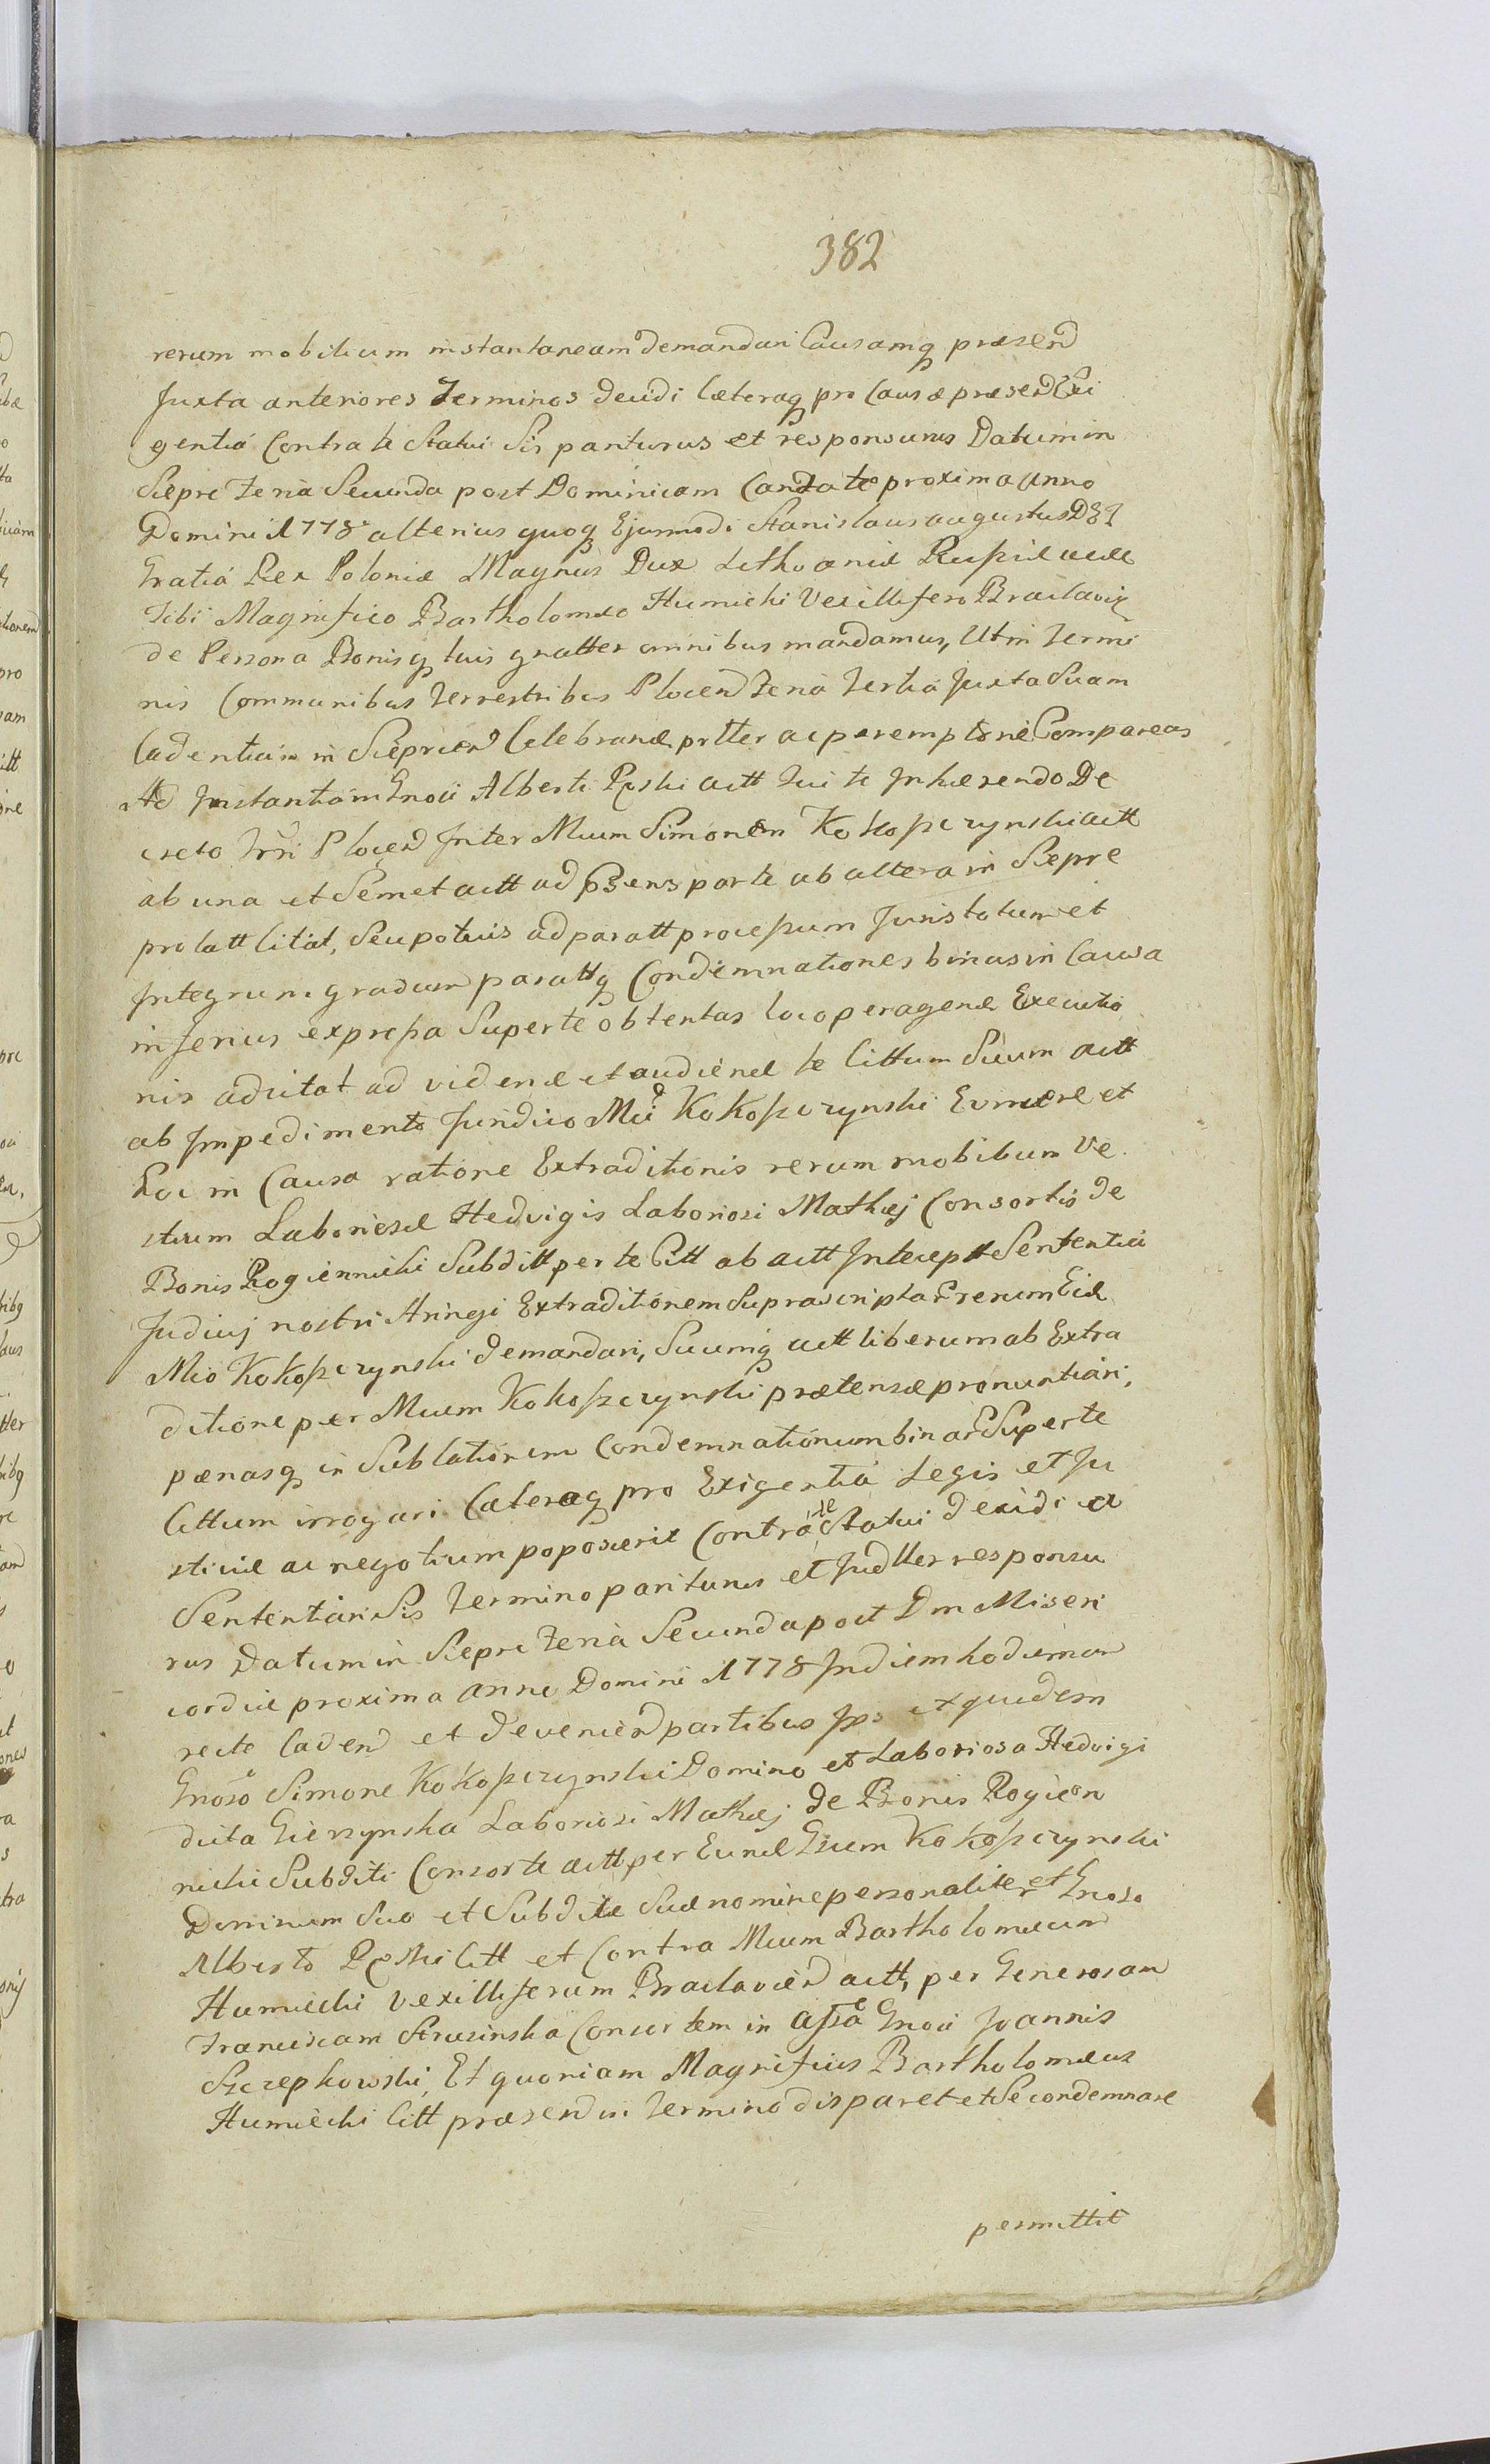 382
rerum mobilium instantaneam demandari Causamq præsend
Juxta anteriores Terminos decidi Cæteraq pro Causæ præsend Exi
gentiá Contra te Statui Sis pariturus et responsurus Datum in
Sieprc Feria Secunda post Dominicam Cantate proxima Anno
Domini 1778 alterius quoq Ejusmodi Stanislaus augustus DEI
Gratiá Rex Poloniæ Magnus Dux Lithvaniæ Rußiæ ectt
Tibi Magnifico Bartholomæo Humiecki Vexillifero Braclavię
de Persona Bonisq tuis gnalter omnibus mandamus, Ut in Termi
nis Communibus Terrestribus Plocend Feria Tertia Juxta Suam
Cadentiam in Sieprcend Celebrand prtter ac peremptorie Compareas
Ad Instantiam Gnosi Alberti Ręski actt Tui te Inhærendo De
creto Trri Plocend Inter Mcum Simonem Kokoszczynski actt
ab una et Semet actt ad præsens parte ab altera in Sieprc
prolatt Citat, Seu potius ad paratt proceßum Juris totum et
Integrum gradum parattq Condemnationes binas in Causa
inferius expreßa Super te obtentas loco peragend Executio
nis adcitat ad videnđ et audiend te Cittum Suum actt
ab Impedimento Juridico Mci Kokoszczynski Evincere et
Loc in Causa ratione Extraditionis rerum mobilium Ve
stium Laboriosæ Hedvigis Laboriosi Mathæj Consortis de
Bonis Rogiennicki Subditt per te Citt ab actt Intercept Sententia
Judicij nostri Aringi Extraditionem Suprascriptar rerum Eid
Mco Kokoszczynski demandari, Suumq actt liberum ab Extra
ditione per Mcum Kokoszczynski prætensæ pronuntiari,
pænasq in Sublationem Condemnationum binar Super te
Cittum irrogari Cæteraq pro Exigentiá Legis et Ju
stitiæ ac negotium poposcerit Contra te Statui decidi a
Sententiari Sis Termino pariturus et Judtter responsu
rus Datum in Sieprc Feria Secunda post Dm Miseri
cordiæ proxima anno Domini 1778 In diem hodiernam
recte Cadend et deveniend partibus Ipsis et quidem
Gnoso Simone Kokoszczynski Domino et Laboriosa Hedvigi
dicta Gierzynska Laboriosi Mathæj de Bonis Rogien
nicki Subditi Consorte actt per Eund Gsum Kokoszczynski
Dominum Suo et Subditæ Suæ nomine personaliter et Gnoso
Alberto Ręski Citt et Contra Mcum Bartholomæum
Humiecki Vexilliferum Braclaviend actt, per Generosam
Franciscam Strusinska Consortem in aßa Gnosi Joannis
Szczepkowski, Et quoniam Magnificus Bartholomæus
Humiecki Citt præsend in Termino disparet et Se condemnare
permittit